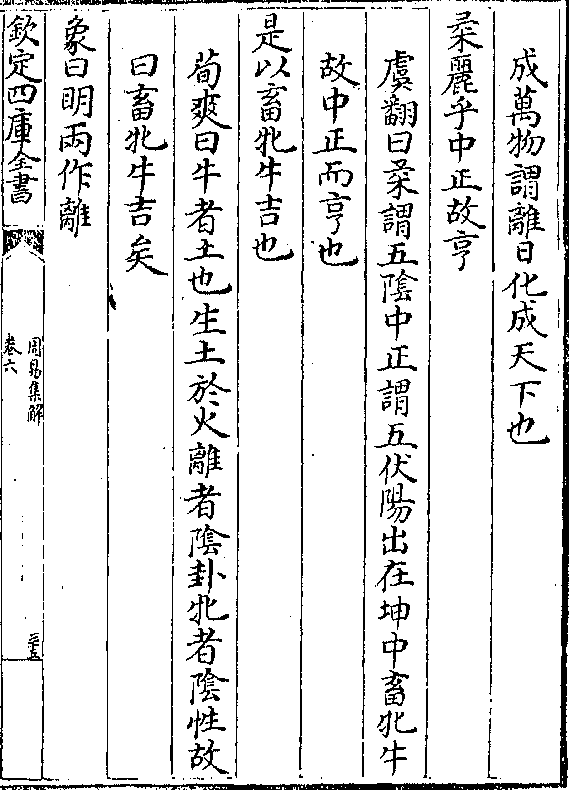 成萬物謂離日化成天下也
柔麗乎中正故亨
虞翻曰柔謂五陰中正謂五伏陽出在坤中畜牝牛
故中正而亨也
是以畜牝牛吉也
荀爽曰牛者土也生土於火離者陰卦牝者陰性故
曰畜牝牛吉矣
象曰明兩作離
欽定四庫全書
周易集解
卷六
三十五